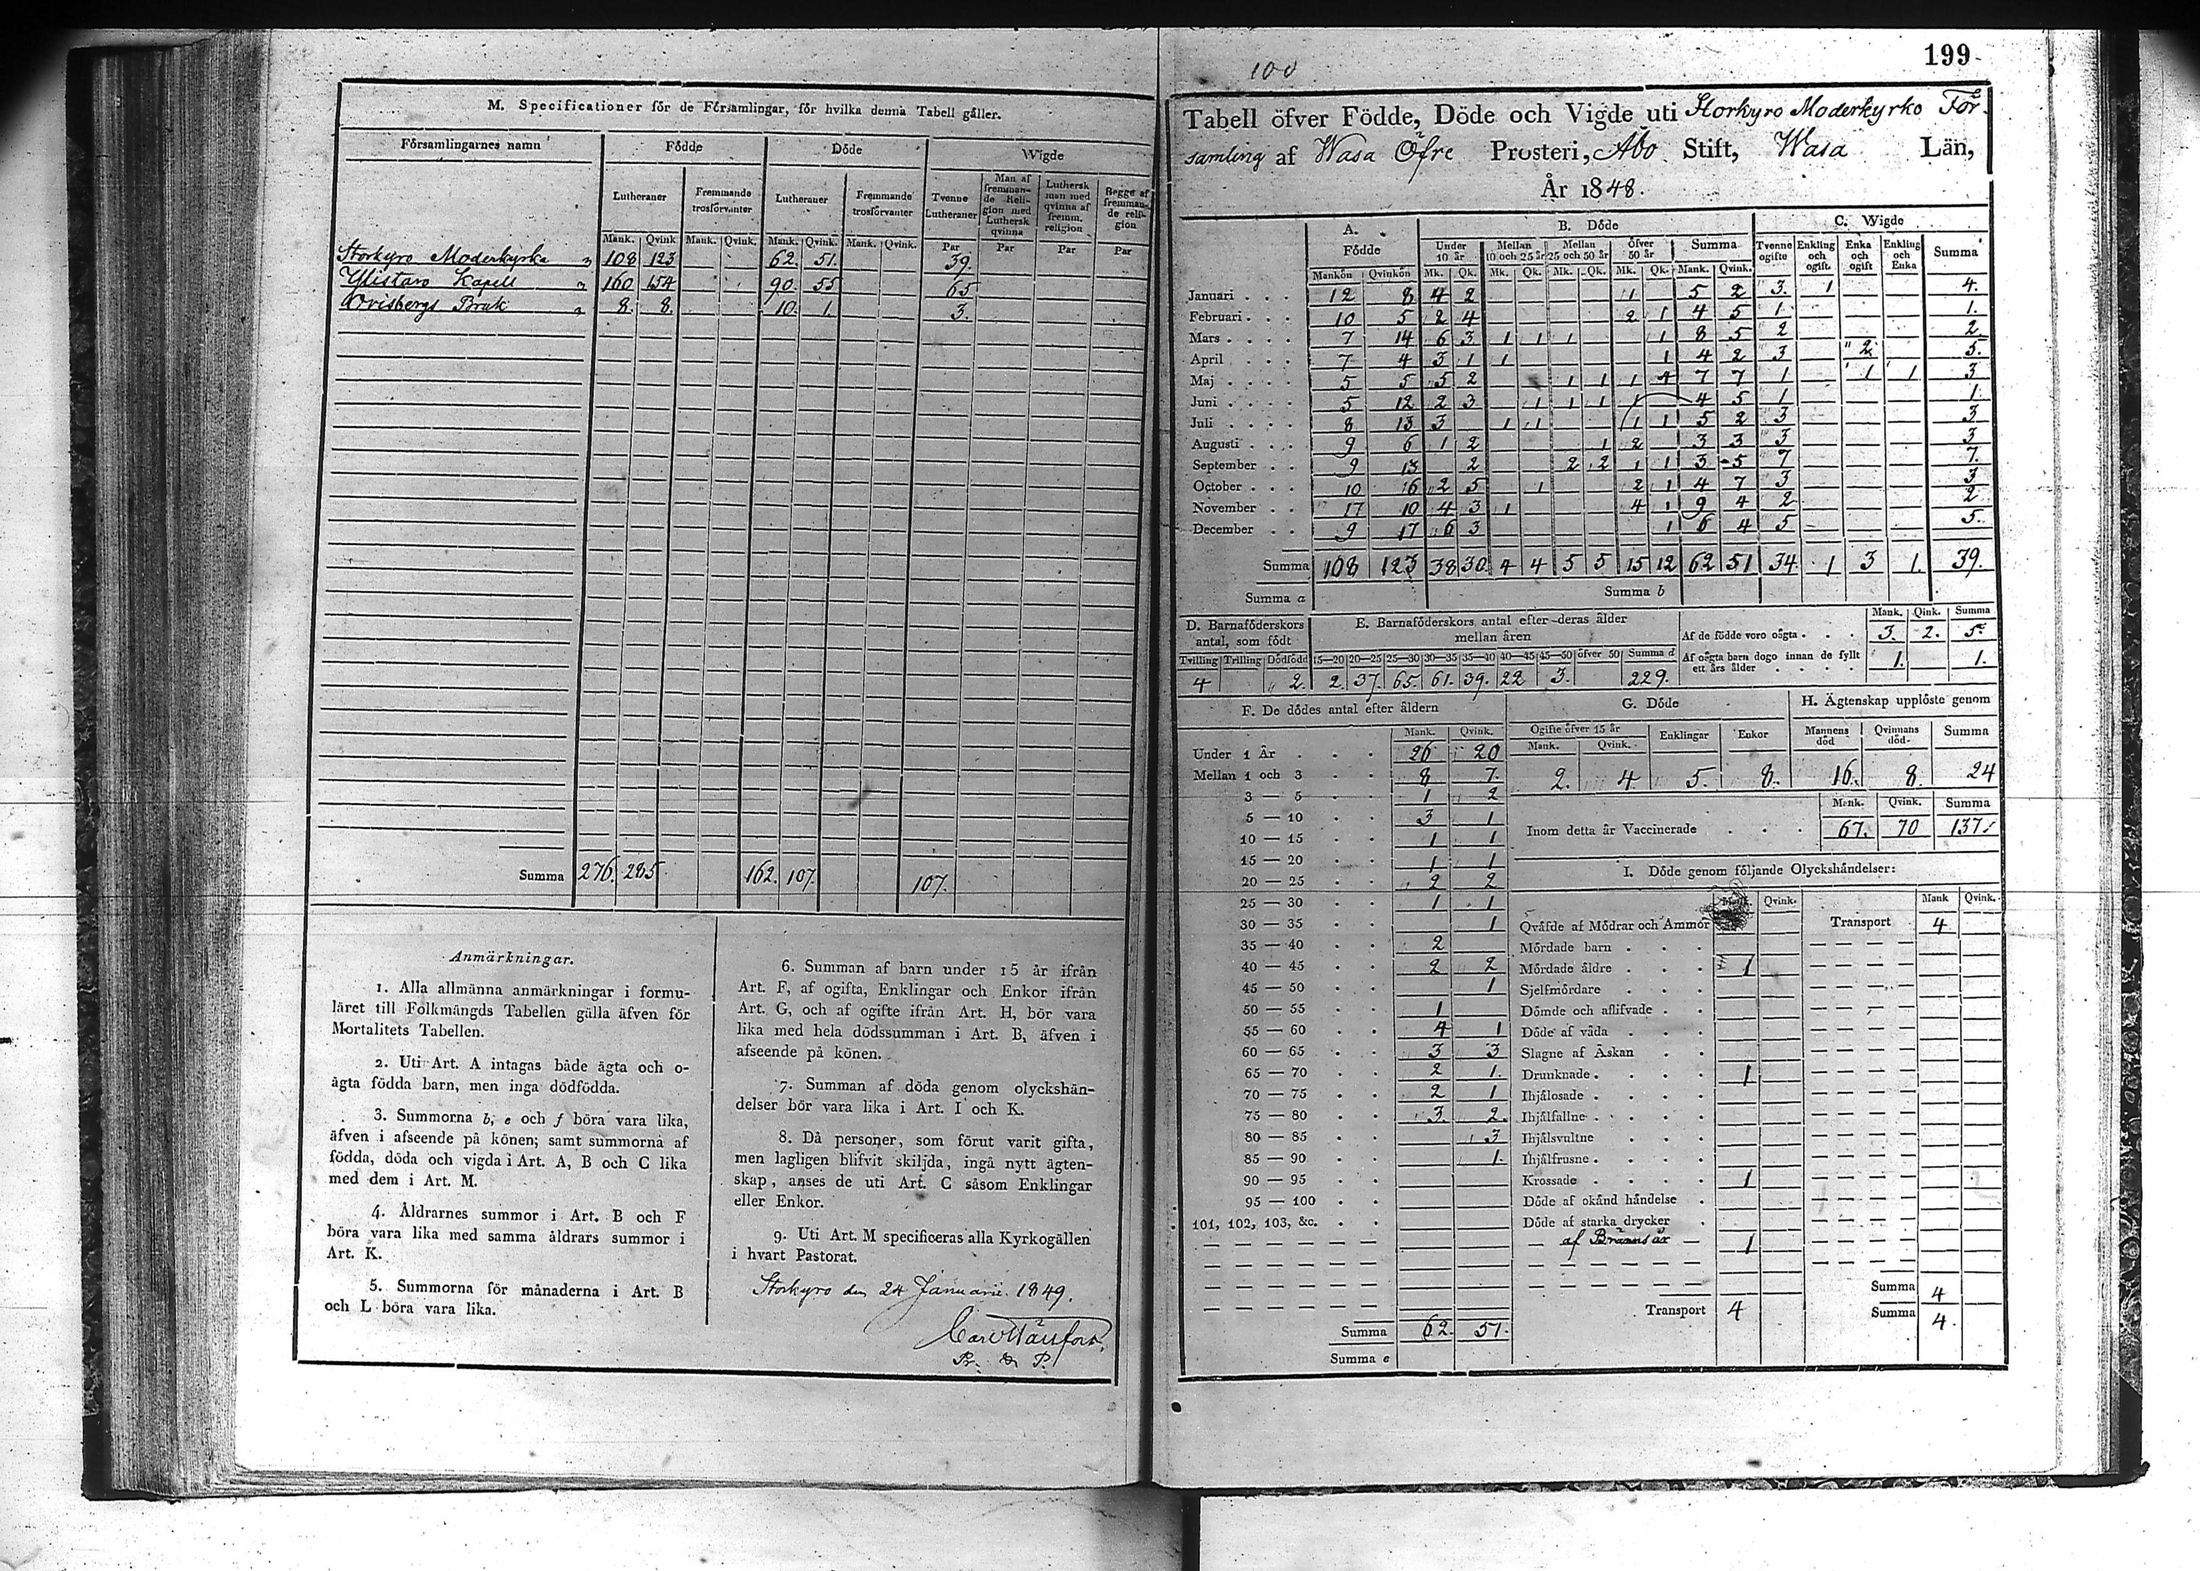 M. Specificationer för de Församlingar, för hvilka denna Tabell gäller.
Församlingarnes namn Födde Döde Wigde
Lutheraner Fremmande trosförvanter Lutheraner Fremmande trosförvanter Tvenne Lutheraner Man af fremmande Religion med Luthersk qvinna Luthersk man med qvinna af fremm. religion Begge af fremmande religion
Mank. Qvink Mank. Qvink. Mank. Qvink. Mank. Qvink. Par Par Par Par
Storkyro Moderkyrka 108 123 62. 51. 39.
Ylistaro Kapell 160 154 90. 55 65
Orisbergs Bruk 8. 8. 10. 1. 3.
Summa 276. 285 162. 107. 107.
Anmärkningar.
1. Alla allmänna anmärkningar i formu-
läret till Folkmängds Tabellen gälla äfven för
Mortalitets Tabellen.
2. Uti Art. A intagas både ägta och o-
ägta födda barn, men inga dödfödda.
3. Summorna b, e och f böra vara lika,
äfven i afseende på könen; samt summorna af
födda, döda och vigda i Art. A, B och C lika
med dem i Art. M.
4. Åldrarnes summor i Art. B och F
böra vara lika med samma åldrars summor i
Art. K.
5. Summorna för månaderna i Art. B
och L böra vara lika.
6. Summan af barn under 15 år ifrån
Art. F, af ogifta, Enklingar och Enkor ifrån
Art. G, och af ogifte ifrån Art. H, bör vara
lika med hela dödssumman i Art. B, äfven i
afseende på könen.
7. Summan af döda genom olyckshän-
delser bör vara lika i Art. I och K.
8. Då personer, som förut varit gifta,
men lagligen blifvit skiljda, ingå nytt ägten-
skap, anses de uti Art. C såsom Enklingar
eller Enkor.
9. Uti Art. M specificeras alla Kyrkogällen
i hvart Pastorat.
Storkyro den 24 Januarii 1849.
100
199
Tabell öfver Födde, Döde och Vigde uti Storkyro Moderkyrko För-
samling af Wasa Öfre Prosteri, Åbo Stift, Wasa Län,
År 1848.
A. Födde B. Döde C. Wigde
Under 10 år Mellan 10 och 25 år Mellan 25 och 50 år Öfver 50 år Summa Tvenne ogifte Enkling och ogift. Enka och ogift Enkling och Enka Summa
Mankön Qvinkön Mk. Qk. Mk. Qk. Mk. Qk. Mk. Qk. Mank. Qvink.
Januari 12 8 4 2 1 5 2 3. 1 4.
Februari 10 5 2 4 2 1 4 5 1 1.
Mars 7 14 6 3 1 1 1 1 8 5 2 2
April 7 4 3 1 1 1 4 2 3 2 5.
Maj 5 5 5 2 1 1 1 4 7 7 1 1 1 3
Juni 5 12 2 3 1 1 1 1 4 5 1 1
Juli 8 13 3 1 1 1 1 5 2 3 3
Augusti 9 6 1 2 1 2 3 3 3 3
September 9 13 2 2 2 1 1 3 5 7 7.
October 10 16 2 5 1 2 1 4 7 3 3
November 17 10 4 3 1 4 1 9 4 2 2
December 9 17 6 3 1 6 4 5 5.
Summa 108 123 38 30. 4 4 5 5 15 12 62 51 34. 1 3 1. 39.
Summa a Summa b
D. Barnaföderskors antal, som födt
E. Barnaföderskors antal efter deras ålder mellan åren
Mank. Qink. Summa
Af de födde voro oägta 3. 2. 5.
Af oägta barn dogo innan de fyllt ett års ålder 1. 1.
Tvilling Trilling Dödfödd 15—20 20—25 25—30 30—35 35—40 40—45 45—50 öfver 50 Summa d
4 2. 2. 37. 65. 61. 39. 22 3. 229.
F. De dödes antal efter åldern
Mank. Qvink.
Under 1 År 26 20
Mellan 1 och 3 8 7.
3 — 5 1 2
5 — 10 3 1
10 — 15 1 1
15 — 20 1 1
20 — 25 2 2
25 — 30 1 1
30 — 35 1
35 — 40 2
40 — 45 2 2
45 — 50 1
50 — 55 1
55 — 60 4 1
60 — 65 3 3
65 — 70 2 1.
70 — 75 2 1
75 — 80 3. 2.
80 — 85 3
85 — 90 1.
90 — 95
95 — 100
101, 102, 103, &c.
Summa 62. 51.
Summa e
G. Döde
Ogifte öfver 15 år Enklingar Enkor
Mank. Qvink.
2. 4. 5. 8.
H. Ägtenskap upplöste genom
Mannens död Qvinnans död Summa
16. 8. 24
Mank. Qvink. Summa
Inom detta år Vaccinerade 67. 70 137
I. Döde genom följande Olyckshändelser:
Qvink. Mank Qvink.
Qväfde af Mödrar och Ammor Transport 4
Mördade barn
Mördade äldre 1
Sjelfmördare
Dömde och aflifvade
Döde af våda
Slagne af Åskan
Drunknade 1
Ihjälosade
Ihjälfallne
Ihjälsvultne
Ihjälfrusne
Krossade 1
Döde af okänd händelse
Döde af starka drycker
af Brännsår 1
Summa 4
Transport 4 Summa 4.